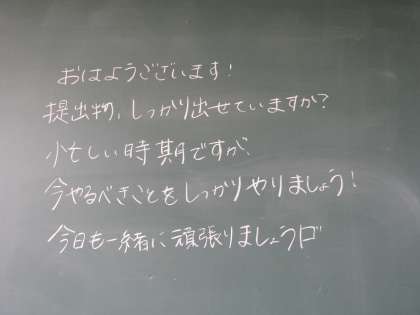 おはようございます!
提出物、しっかり出せていますか?
忙しい時期ですが、
今やるべきことをしっかりやりましょう!
今日も一緒に頑張りましょう